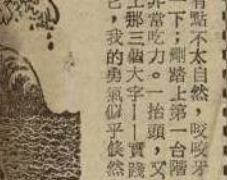 有點不太自然，咬咬牙
一下；剛踏上第一台階
非常吃力。一抬頭，又
上那三個大字——實踐
已，我的勇氣似乎倏然